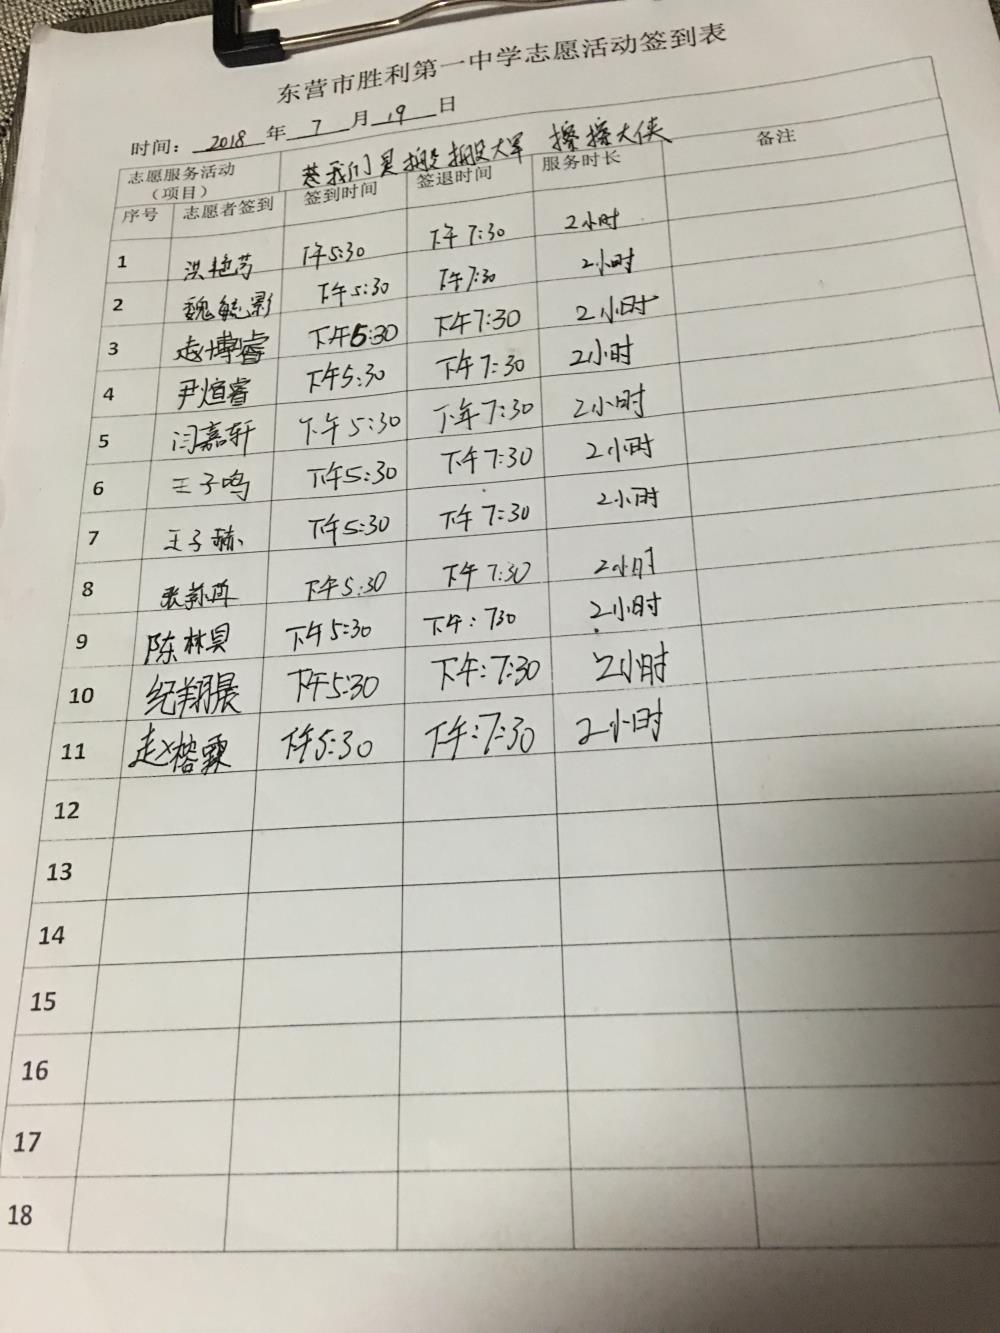 东营市胜利第一中学志愿活动签到表
时间： 2018 年 7 月 19 日
志愿服务活动（项目） 我们是搬搬大军 擦擦大侠
序号 志愿者签到 签到时间 签退时间 服务时长 备注
1 洪艳芳 下午5:30 下午7:30 2小时
2 魏毓影 下午5:30 下午7:30 2小时
3 赵博睿 下午5:30 下午7:30 2小时
4 尹煊睿 下午5:30 下午7:30 2小时
5 闫嘉轩 下午5:30 下午7:30 2小时
6 王子鸣 下午5:30 下午7:30 2小时
7 王子赫 下午5:30 下午7:30 2小时
8 下午5:30 下午7:30 2小时
9 陈林昊 下午5:30 下午:730 2小时
10 纪翔晨 下午5:30 下午:7:30 2小时
11 赵榕霖 下午5:30 下午:7:30 2小时
12
13
14
15
16
17
18